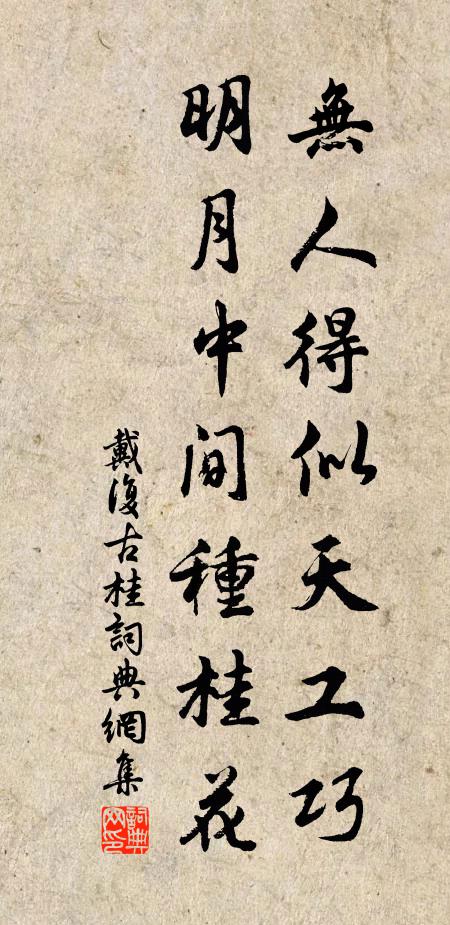 無人得似天工巧
明月中间種桂花
戴復古桂詞典網集
詞典网印